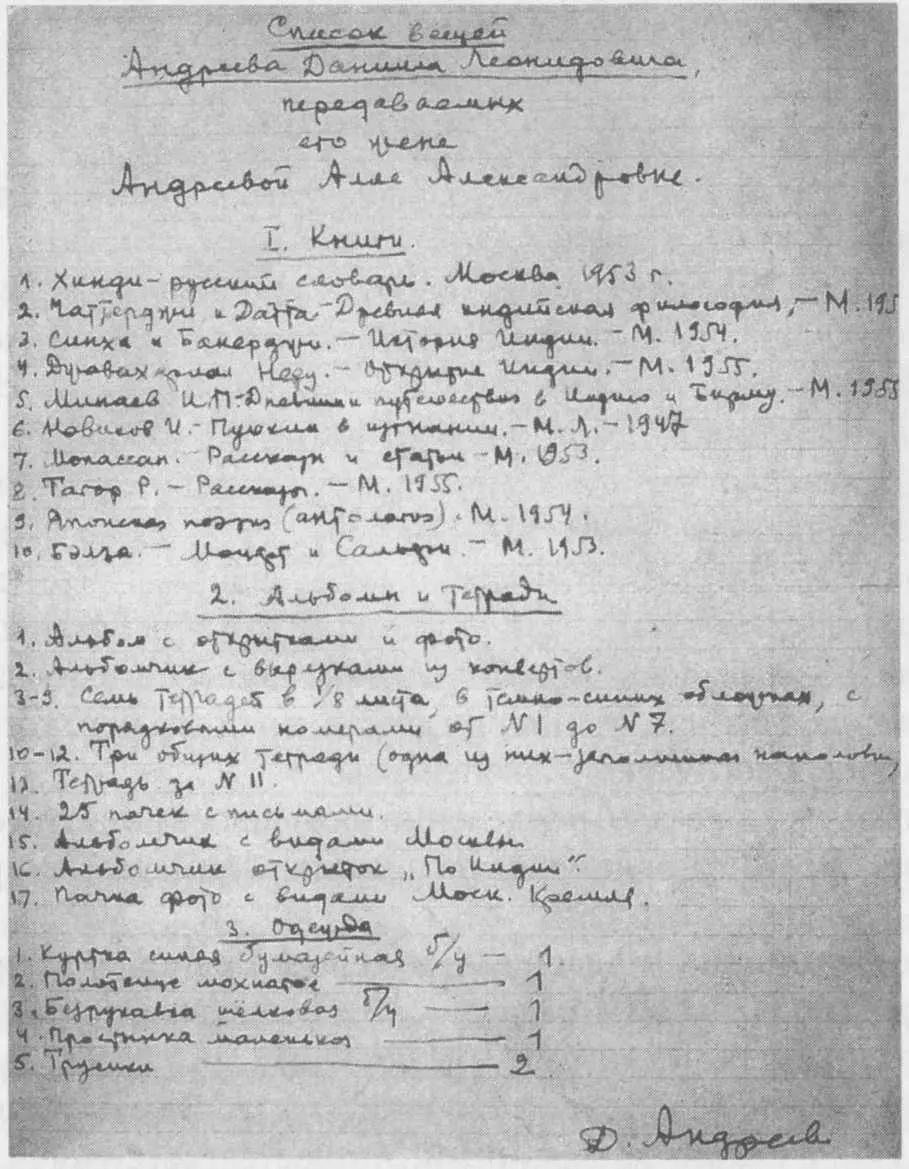 Список вещей
Андреева Даниила Леонидовича,
передаваемых
его жене
Андреевой Алле Александровне.
I. Книги.
1. Хинди-русский словарь. Москва 1953 г.
2. Чаттерджи и Датта - Древняя индийская философия, - М. 195
3. Синха и Банерджи. - История Индии. - М. 1954.
4. Джавахарлал Неру. - Открытие Индии. - М. 1955.
5. Минаев И.П. - Дневники путешествия в Индию и Бирму. - М. 1955
6. Новиков И. - Пушкин в изгнании. - М. Л. - 1947
7. Мопассан. Рассказы и статьи - М. 1953.
8. Тагор Р. - Рассказы. - М. 1955.
9. Японская поэзия (антология). М. 1954.
10. Бэлза. - Моцарт и Сальери. - М. 1953.
2. Альбомы и тетради
1. Альбом с открытками и фото.
2. Альбомчик с вырезками из конвертов.
3-9. Семь тетрадей в 1/8 листа, в темно-синих обложках, с
порядковыми номерами от N 1 до N 7.
10-12. Три общих тетради (одна из них - заполненная наполовину)
13. Тетрадь за N 11.
14. 25 пачек с письмами.
15. Альбомчик с видами Москвы
16. Альбомчик открыток „По Индии".
17. Пачка фото с видами Моск. Кремля.
3. Одежда
1. Куртка синяя бумазейная б/у - 1
2. Полотенце мохнатое — 1
3. Безрукавка шёлковая б/у — 1
4. Простынка маленькая — 1
5. Трусики — 2
Д. Андреев